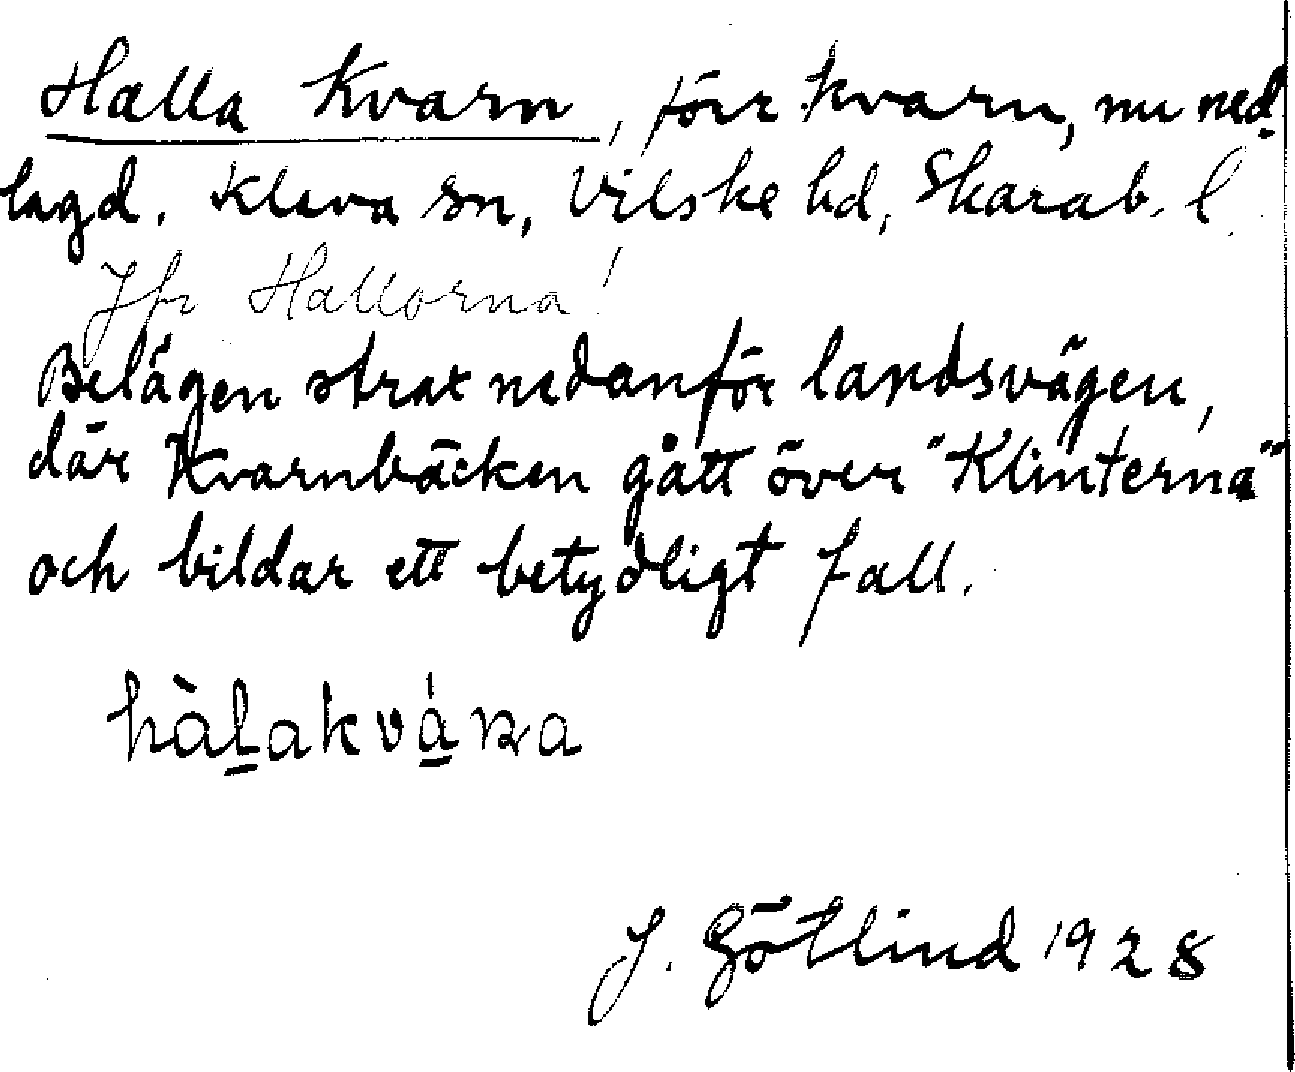 Halla Kvarn, förr kvarn, nu ned-
lagd. Kleva sn, Vilske hd, Skarab. l.
Jfr Hallorna!
Belägen strax nedanför landsvägen,
där Kvarnbäcken gått över "Klinterna"
och bildar ett betydligt fall.
J. Götlind 1928